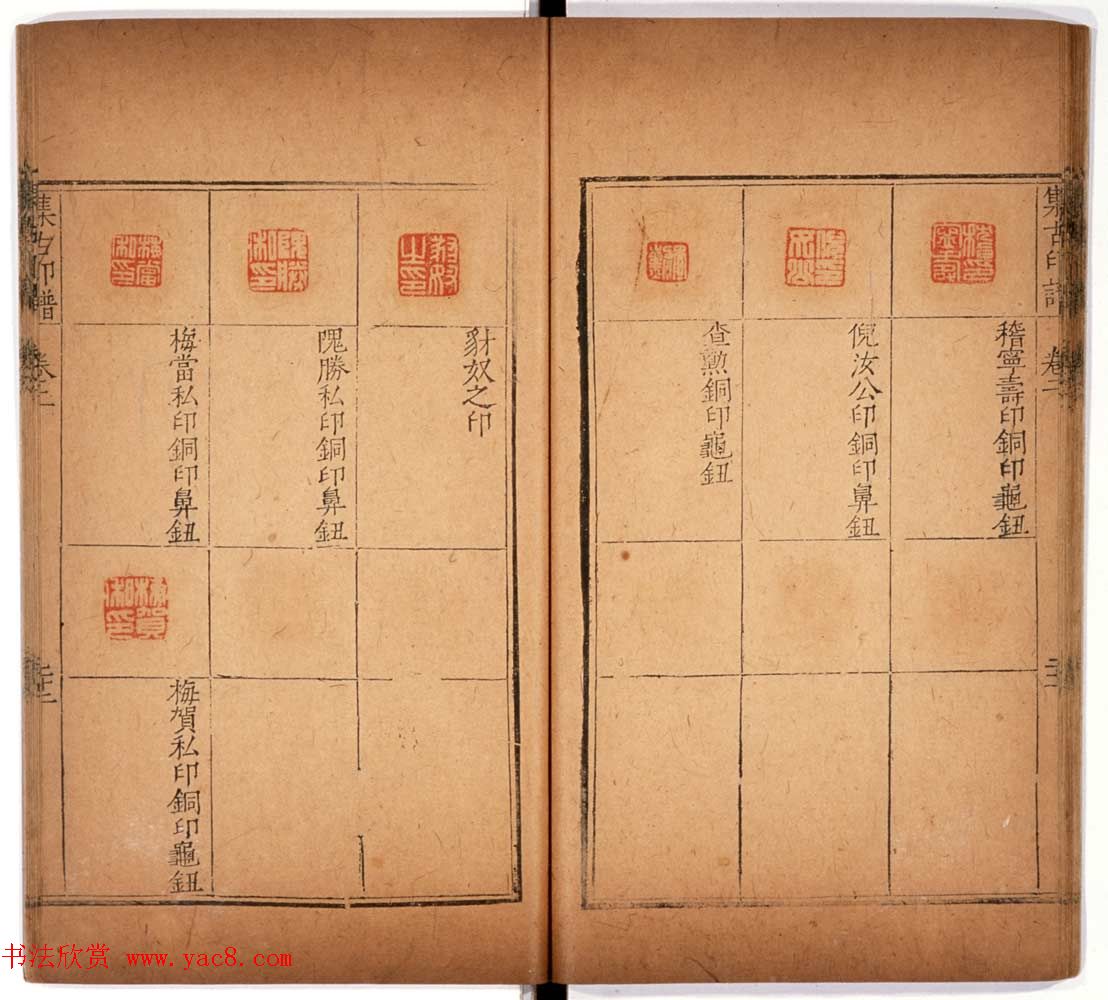 集古印譜
卷二
稽寧壽印銅印龜鈕
倪汝公印銅印鼻鈕
查勲銅印龜鈕
豺奴之印
隗勝私印銅印鼻鈕
梅當私印銅印鼻鈕
梅賀私印
梅賀私印銅印龜鈕
集古印譜
卷二
书法欣赏 www.yac8.com